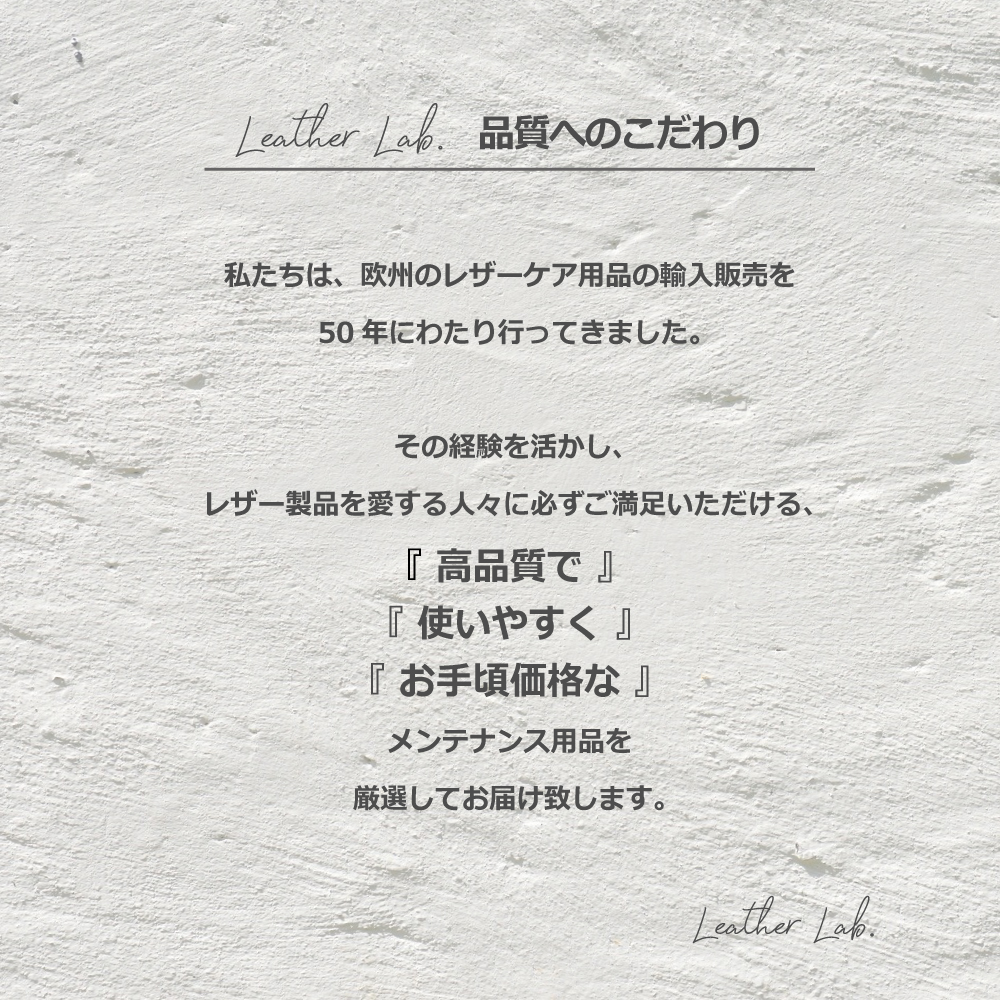 Leather Lab. 品質へのこだわり
私たちは、欧州のレザーケア用品の輸入販売を
50 年にわたり行ってきました。
その経験を活かし、
レザー製品を愛する人々に必ずご満足いただける、
『 高品質で 』
『 使いやすく 』
『 お手頃価格な 』
メンテナンス用品を
厳選してお届け致します。
Leather Lab.